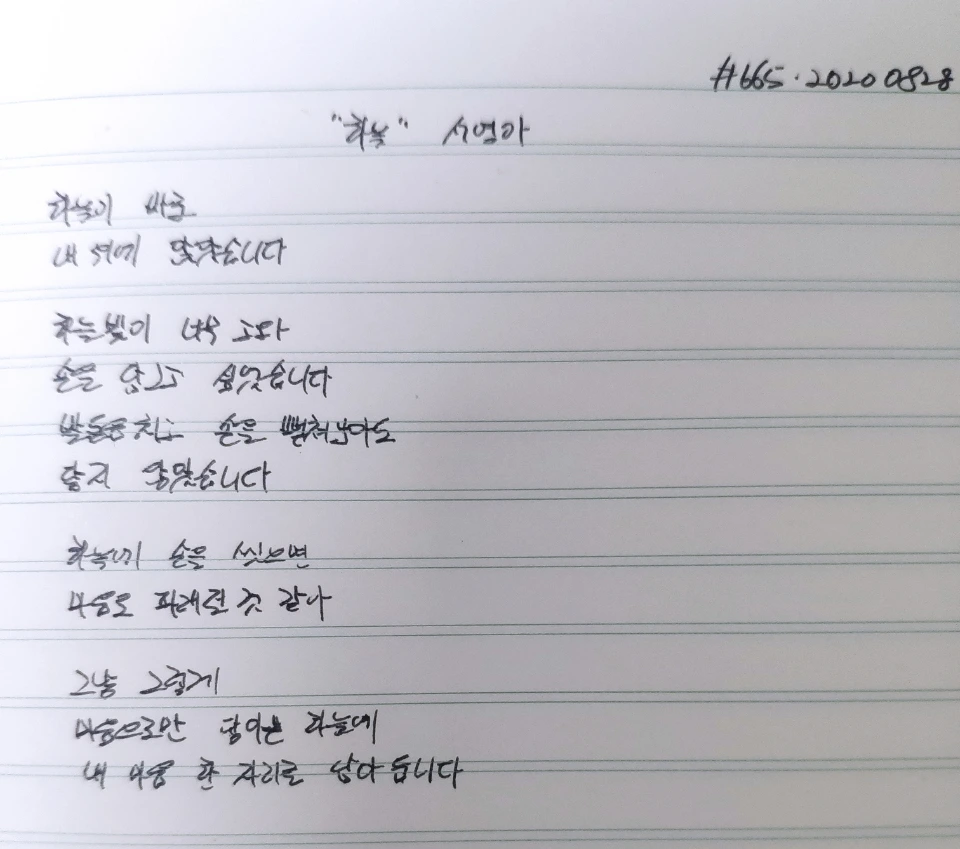 #665 · 20200828
"하늘" 서영아
하늘이 바로
내 위에 맞닿습니다
하늘빛이 너무 고와
손을 담그고 싶었습니다
발돋움치고 손을 뻗쳐보아도
닿지 않았습니다
하늘에 손을 씻으면
마음도 파래질 것 같아
그냥 그렇게
마음으로만 닿아본 하늘에
내 마음 한 자리로 남아 듭니다